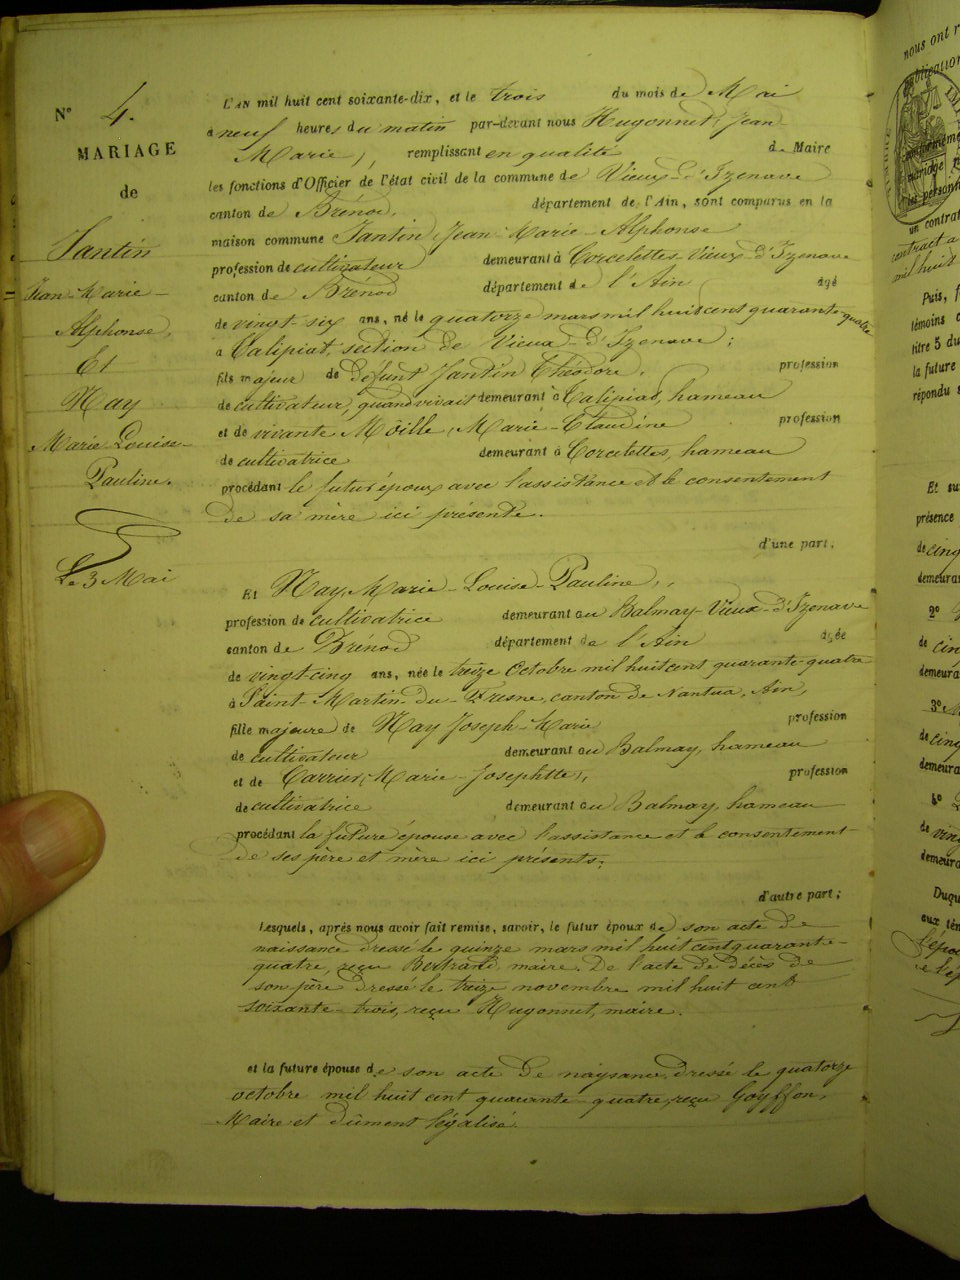 N° 4.
MARIAGE
de
Jantin
Jean-Marie-
Alphonse,
Et
Nay
Marie-Louise-
Pauline.
Le 3 Mai
L'AN mil huit cent soixante-dix, et le trois du mois de Mai
à neuf heures du matin par-devant nous Hugonnet, Jean
Marie, remplissant en qualité de Maire
les fonctions d'Officier de l'état civil de la commune de Vieux-d'Izenave
canton de Brénod, département de l'Ain, sont comparus en la
maison commune Jantin Jean-Marie-Alphonse
profession de cultivateur demeurant à Corcelettes-Vieux-d'Izenave
canton de Brénod département de l'Ain âgé
de vingt-six ans, né le quatorze mars mil huit cent quarante quatre
à Talipiat, section de Vieux-d'Izenave;
fils majeur de défunt Jantin Théodore, profession
de cultivateur, quand vivait demeurant à Talipiat, hameau
et de vivante Moille, Marie-Claudine profession
de cultivatrice demeurant à Corcelettes, hameau
procédant le futur époux avec l'assistance et le consentement
de sa mère ici présente.
d'une part.
Et Nay, Marie-Louise-Pauline,
profession de cultivatrice demeurant au Balmay-Vieux-d'Izenave
canton de Brénod département de l'Ain âgée
de vingt-cinq ans, née le treize Octobre mil huit cent quarante-quatre
à Saint-Martin-du-Fresne, canton de Nantua, Ain,
fille majeure de Nay Joseph-Marie profession
de cultivateur demeurant au Balmay, hameau
et de Carrier, Marie-Josephte, profession
de cultivatrice demeurant au Balmay, hameau
procédant la future épouse avec l'assistance et le consentement
de ses père et mère ici présents;
d'autre part;
Lesquels, après nous avoir fait remise, savoir, le futur époux de son acte de
naissance dressé le quinze mars mil huit cent quarante-
quatre, reçu Bertrand, maire. De l'acte de décès de
son père dressé le treize novembre mil huit cent
soixante-trois, reçu Hugonnet, maire.
et la future épouse de son acte de naissance, dressé le quatorze
octobre mil huit cent quarante-quatre, reçu Goyffon,
Maire et dûment légalisé.
nous ont
mariage
un contrat
contract a
mil huit
Puis,
témoins
titre 5 du
la future
répondu
Et
présence
de cinq
demeurant
2°
de cin
demeura
3°
de cinq
demeura
4°
de ving
demeura
Duqu
aux tém